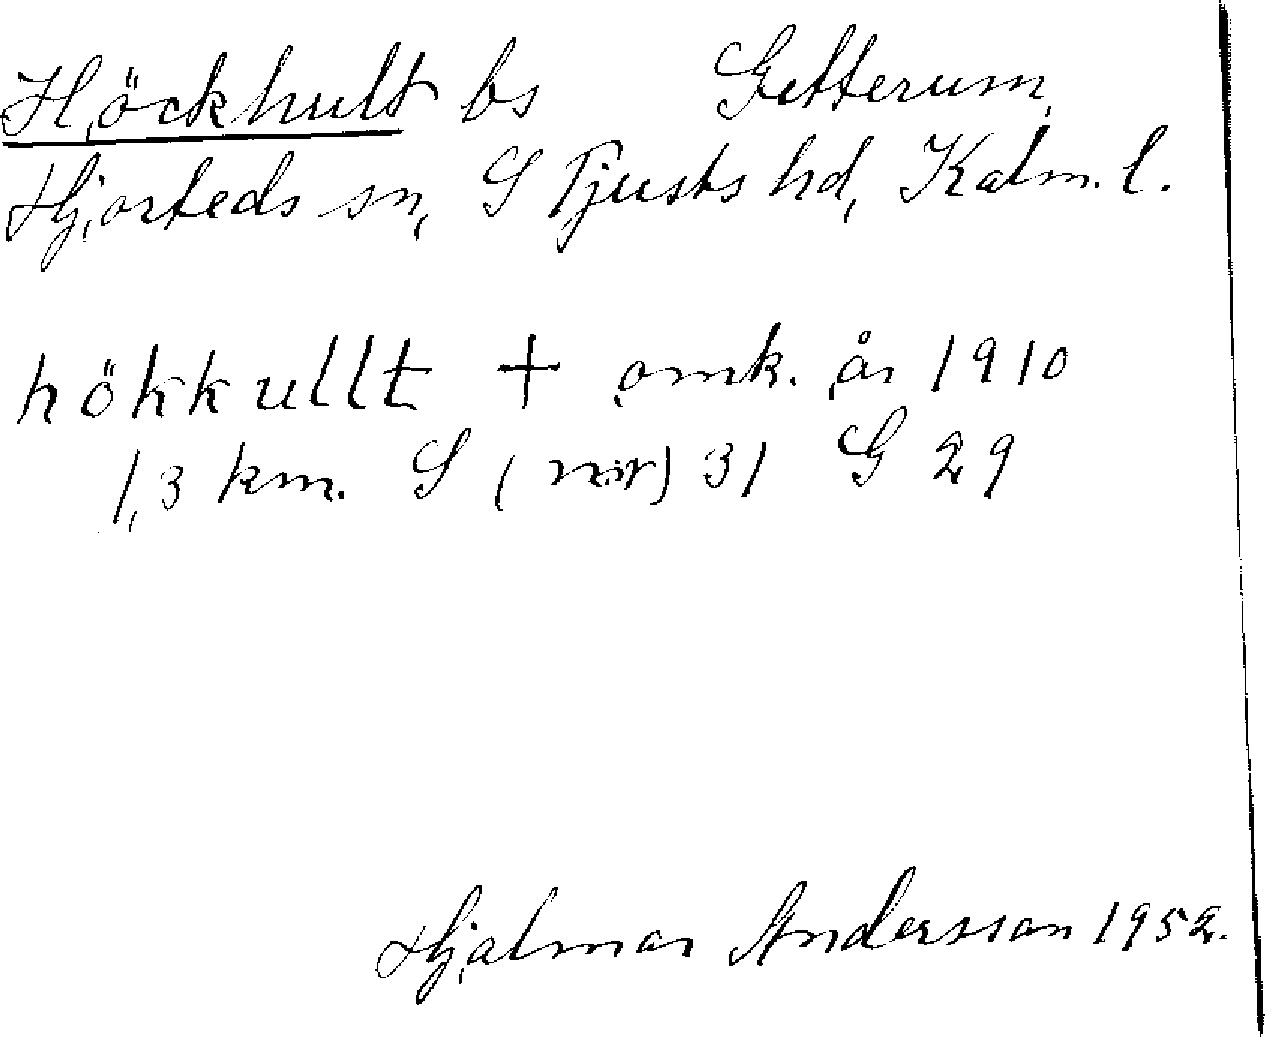 Höckhult bs Getterum,
Hjorteds sn, S Tjusts hd, Kalm. l.
hökkullt + omk. år 1910
1,3 km. S (nör) 31 G 29
Hjalmar Andersson 1952.